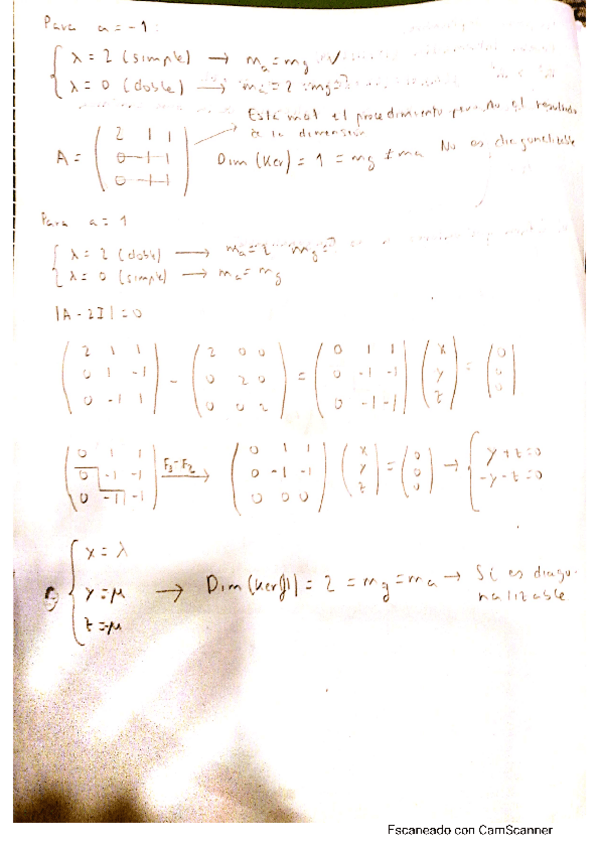 Para a = -1 :
{ λ = 2 (simple) → ma = mg ✓
{ λ = 0 (doble) → ma = 2 mg = ?
Está mal el procedimiento pero No el resultado
de la dimensión
A = ( 2 1 1 / 0 -1 1 / 0 -1 1 ) Dim (Ker) = 1 = mg ≠ ma No es diagonalizable
Para a = 1
{ λ = 2 (doble) → ma = 2 mg = ?
{ λ = 0 (simple) → ma = mg
|A - 2I| = 0
( 2 1 1 / 0 1 -1 / 0 -1 1 ) - ( 2 0 0 / 0 2 0 / 0 0 2 ) = ( 0 1 1 / 0 -1 -1 / 0 -1 -1 ) ( x / y / z ) = ( 0 / 0 / 0 )
( 0 1 1 / 0 -1 -1 / 0 -1 -1 ) F3-F2 → ( 0 1 1 / 0 -1 -1 / 0 0 0 ) ( x / y / z ) = ( 0 / 0 / 0 ) → { y + z = 0 / -y - z = 0
{ x = λ
{ y = μ → Dim (Ker f) = 2 = mg = ma → Sí es diago-
nalizable
{ z = -μ
Escaneado con CamScanner